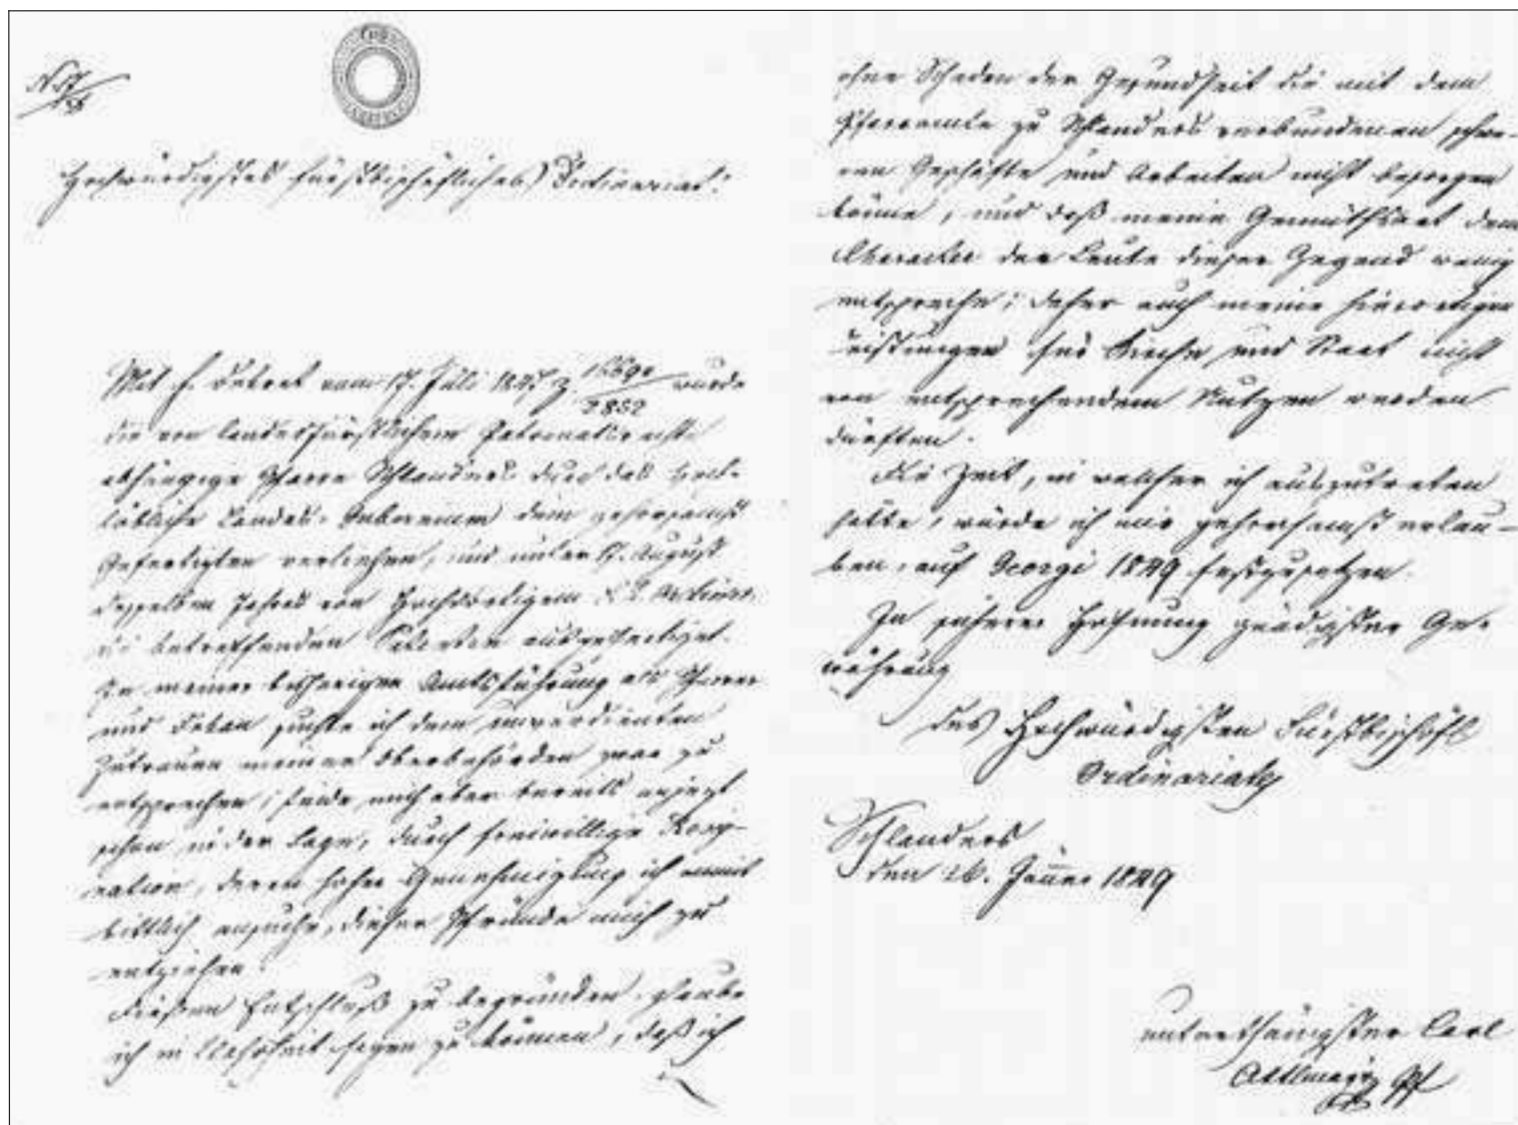 Hochwürdigstes fürstbischöfliches Ordinariat!
Mit h. Dekret vom 17. Juli 1847 Z. wurde
die von landesfürstlichem Patronatsrechte
abhängige Pfarre Schlanders durch das hoch-
löbliche Landes-Gubernium dem gehorsamst
Gefertigten verliehen, und unter 17. August
desselben Jahres vom Hochwürdigem Ordinar.
die betreffenden Patenten ausgefertiget.
In meiner bisherigen Amtsführung als Pfarrer
und Dekan suchte ich dem unverdienten
Zutrauen meiner Oberbehörden zwar zu
entsprechen; finde mich aber bereits anjezt
schon in der Lage, durch freiwillige Resig-
nation, deren hohe Genehmigung ich anmit
bittlich ansuche, dieser Pfründe mich zu
entziehen.
Diesen Entschluß zu begründen, glaube
ich in Wahrheit sagen zu können, daß ich
ohne Schaden der Gesundheit die mit dem
Pfarramte zu Schlanders verbundenen schwe-
ren Geschäfte und Arbeiten nicht besorgen
könne, und daß meine Gemüthsart dem
Character der Leute dieser Gegend wenig
entspreche; daher auch meine hierortigen
Leistungen für Kirche und Staat nicht
von entsprechendem Nutzen werden
dürften.
Die Zeit, in welcher ich auszutreten
hätte, würde ich mir gehorsamst erlau-
ben, auf Georgi 1849 festzusetzen.
In sicherer Hoffnung gnädigster Ge-
währung
des Hochwürdigsten Fürstbischöfl
Ordinariats
Schlanders
den 26. Jänner 1849
unterthänigster Carl